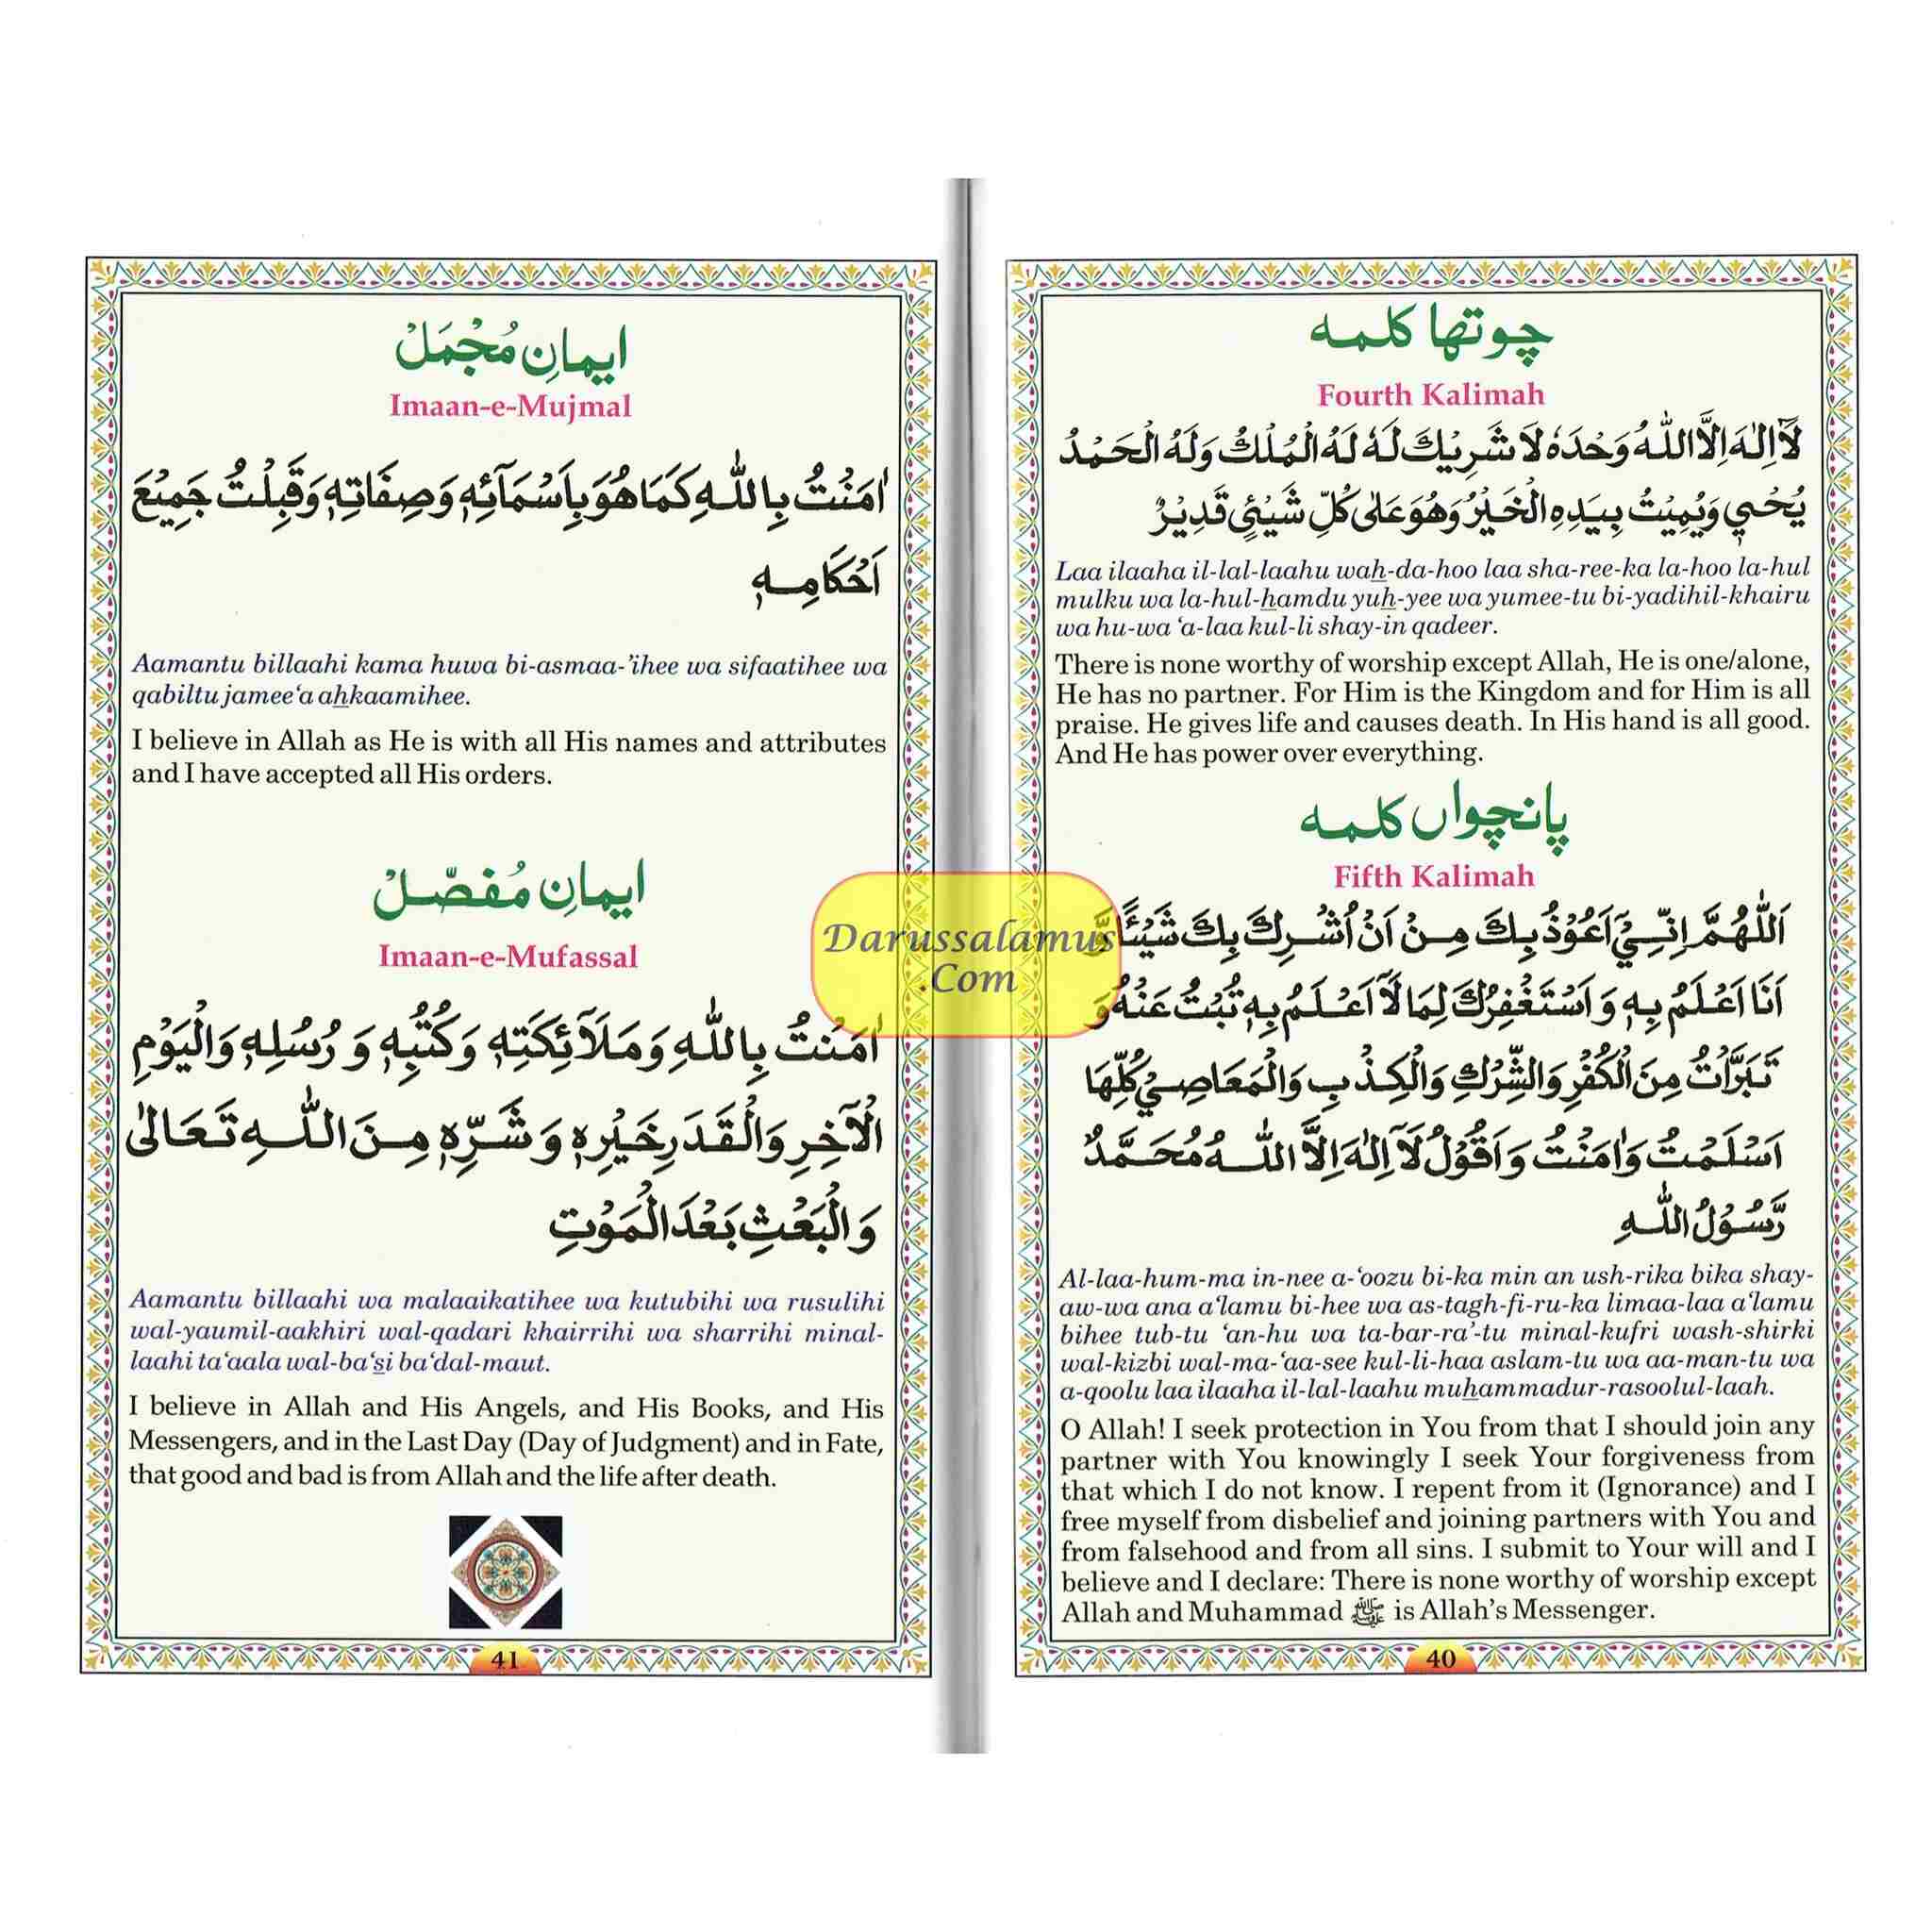 چوتھا کلمہ
Fourth Kalimah
لَآ اِلٰهَ اِلَّا اللّٰهُ وَحْدَهٗ لَا شَرِيْكَ لَهٗ لَهُ الْمُلْكُ وَلَهُ الْحَمْدُ
يُحْيٖ وَيُمِيْتُ بِيَدِهِ الْخَيْرُ وَهُوَ عَلٰى كُلِّ شَيْئٍ قَدِيْرٌ
Laa ilaaha il-lal-laahu wah-da-hoo laa sha-ree-ka la-hoo la-hul
mulku wa la-hul-hamdu yuh-yee wa yumee-tu bi-yadihil-khairu
wa hu-wa ‘a-laa kul-li shay-in qadeer.
There is none worthy of worship except Allah, He is one/alone,
He has no partner. For Him is the Kingdom and for Him is all
praise. He gives life and causes death. In His hand is all good.
And He has power over everything.
پانچواں کلمہ
Fifth Kalimah
اَللّٰهُمَّ اِنِّيْٓ اَعُوْذُ بِكَ مِنْ اَنْ اُشْرِكَ بِكَ شَيْئًا وَّ
اَنَا اَعْلَمُ بِهٖ وَ اَسْتَغْفِرُكَ لِمَا لَآ اَعْلَمُ بِهٖ تُبْتُ عَنْهُ وَ
تَبَرَّاْتُ مِنَ الْكُفْرِ وَالشِّرْكِ وَالْكِذْبِ وَالْمَعَاصِيْ كُلِّهَا
اَسْلَمْتُ وَاٰمَنْتُ وَ اَقُوْلُ لَآ اِلٰهَ اِلَّا اللّٰهُ مُحَمَّدٌ
رَّسُوْلُ اللّٰهِ
Al-laa-hum-ma in-nee a-‘oozu bi-ka min an ush-rika bika shay-
aw-wa ana a‘lamu bi-hee wa as-tagh-fi-ru-ka limaa-laa a‘lamu
bihee tub-tu ‘an-hu wa ta-bar-ra’-tu minal-kufri wash-shirki
wal-kizbi wal-ma-‘aa-see kul-li-haa aslam-tu wa aa-man-tu wa
a-qoolu laa ilaaha il-lal-laahu muhammadur-rasoolul-laah.
O Allah! I seek protection in You from that I should join any
partner with You knowingly I seek Your forgiveness from
that which I do not know. I repent from it (Ignorance) and I
free myself from disbelief and joining partners with You and
from falsehood and from all sins. I submit to Your will and I
believe and I declare: There is none worthy of worship except
Allah and Muhammad ﷺ is Allah’s Messenger.
40
ایمانِ مُجْمَلْ
Imaan-e-Mujmal
اٰمَنْتُ بِاللّٰهِ كَمَا هُوَ بِاَسْمَآئِهٖ وَصِفَاتِهٖ وَقَبِلْتُ جَمِيْعَ
اَحْكَامِهٖ
Aamantu billaahi kama huwa bi-asmaa-’ihee wa sifaatihee wa
qabiltu jamee‘a ahkaamihee.
I believe in Allah as He is with all His names and attributes
and I have accepted all His orders.
ایمانِ مُفصّلْ
Imaan-e-Mufassal
اٰمَنْتُ بِاللّٰهِ وَمَلَآئِكَتِهٖ وَكُتُبِهٖ وَ رُسُلِهٖ وَالْيَوْمِ
الْاٰخِرِ وَالْقَدَرِ خَيْرِهٖ وَ شَرِّهٖ مِنَ اللّٰهِ تَعَالٰى
وَالْبَعْثِ بَعْدَ الْمَوْتِ
Aamantu billaahi wa malaaikatihee wa kutubihi wa rusulihi
wal-yaumil-aakhiri wal-qadari khairrihi wa sharrihi minal-
laahi ta‘aala wal-ba‘si ba‘dal-maut.
I believe in Allah and His Angels, and His Books, and His
Messengers, and in the Last Day (Day of Judgment) and in Fate,
that good and bad is from Allah and the life after death.
41
Darussalamus
.Com